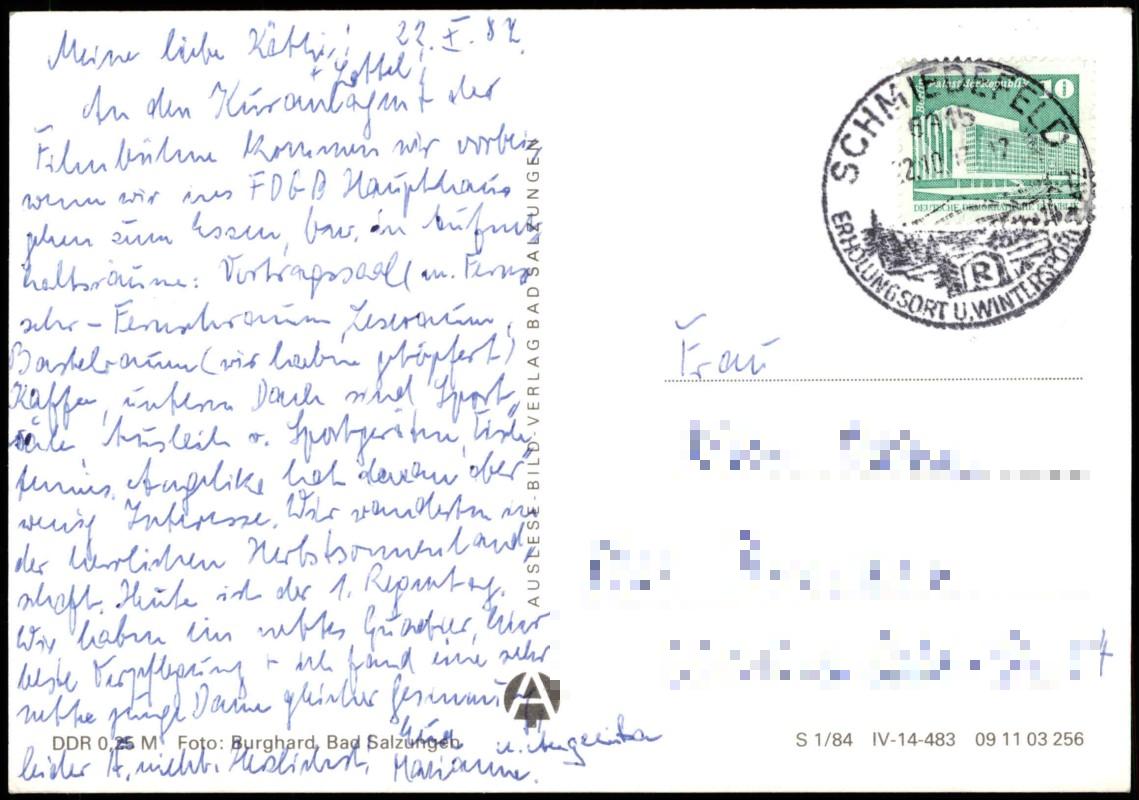 Meine liebe Käthi! 22.X.87
+ Lottel!
An den Kuranlagen + der
Filmbühne kommen wir vorbei
wenn wir ins FDGB Haupthaus
gehen zum Essen, bzw. in Aufent
haltsräume: Vortragssaal (m. Fern
sehr - Fernsehraum, Leseraum,
Bastelraum (wir haben getöpfert)
Kaffee, unterm Dach sind Sport
Ausleih v. Sportgeräten, Tisch
tennis. Angelika hat daran aber
wenig Interesse. Wir wandern in
der herrlichen Herbstsonnenland
schaft. Heute ist der 1. Regentag.
Wir haben ein nettes Quartier,
beste Verpflegung + ich fand eine sehr
nette junge Dame gleicher Gesinnung
leider A. nicht. Herzlichst, Marianne.
u. Angelika
AUSLESE-BILD-VERLAG BAD SALZUNGEN
A
DDR 0,25 M Foto: Burghard, Bad Salzungen
Berlin-Palast der Republik 10
DEUTSCHE DEMOKRATISCHE REPUBLIK
SCHMIEDEFELD
ERHOLUNGSORT U. WINTERSPORTPLATZ
R
Frau
S 1/84 IV-14-483 09 11 03 256